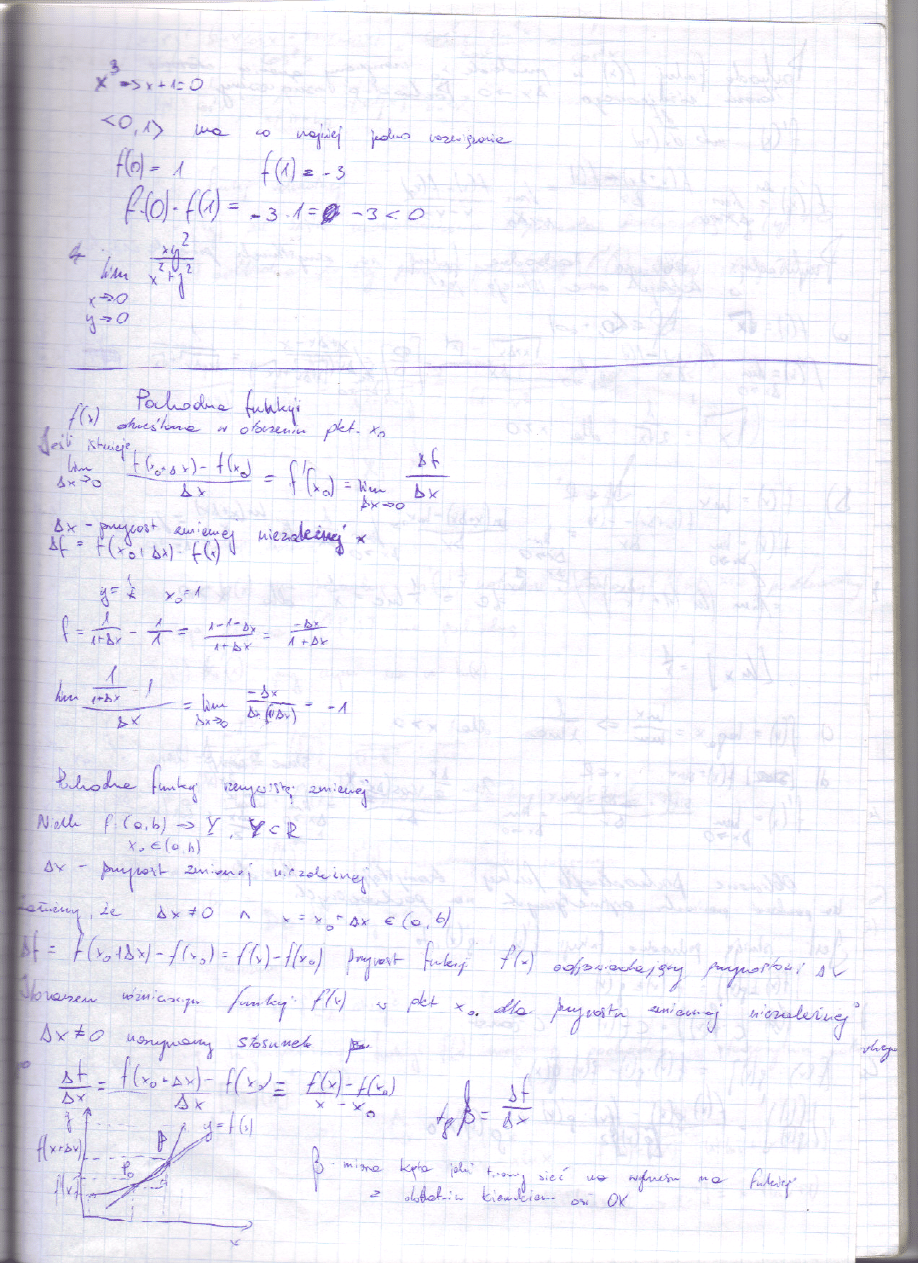 x³ - 3x + 1 = 0
<0,1> ma co najmniej jedno rozwiązanie
f(0) = 1 f(1) = -3
f(0) · f(1) = -3 · 1 = -3 < 0
lim xy² / x² + y²
x→0
y→0
Pochodna funkcji
f(x) określona w otoczeniu pkt. x₀
Jeśli istnieje
lim Δx→0 f(x₀+Δx) - f(x₀) / Δx = f'(x₀) = lim Δx→0 Δf / Δx
Δx - przyrost zmiennej niezależnej x
Δf = f(x₀+Δx) - f(x)
y = 1/x x₀ = 1
f = 1/1+Δx - 1/1 = 1-1-Δx / 1+Δx = -Δx / 1+Δx
lim 1/1+Δx - 1 / Δx = lim Δx→0 -Δx / Δx(1+Δx) = -1
Pochodna funkcji rzeczywistej zmiennej
Niech f: (a,b) → Y, Y ⊂ R
x₀ ∈ (a,b)
Δx - przyrost zmiennej niezależnej
że Δx ≠ 0 ∧ x = x₀ + Δx ∈ (a,b)
Δf = f(x₀+Δx) - f(x₀) = f(x) - f(x₀) przyrost funkcji f(x) odpowiadający przyrostowi Δx
Ilorazem różnicowym funkcji f(x) w pkt x₀ dla przyrostu zmiennej niezależnej
Δx ≠ 0 nazywamy stosunek
Δf/Δx = f(x₀+Δx) - f(x₀) / Δx = f(x) - f(x₀) / x - x₀
tg β = Δf/Δx
y
y = f(x)
f(x+Δx)
P
P₀
f(x)
x
β - miara kąta jaki tworzy sieć na wykresu na funkcji
z dodatnim kierunkiem osi OX